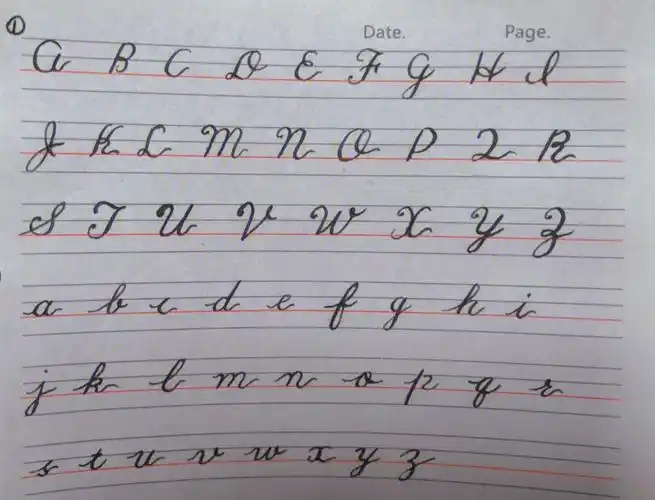 ① Date. Page.
A B C D E F G H I
J K L M N O P Q R
S T U V W X Y Z
a b c d e f g h i
j k l m n o p q r
s t u v w x y z